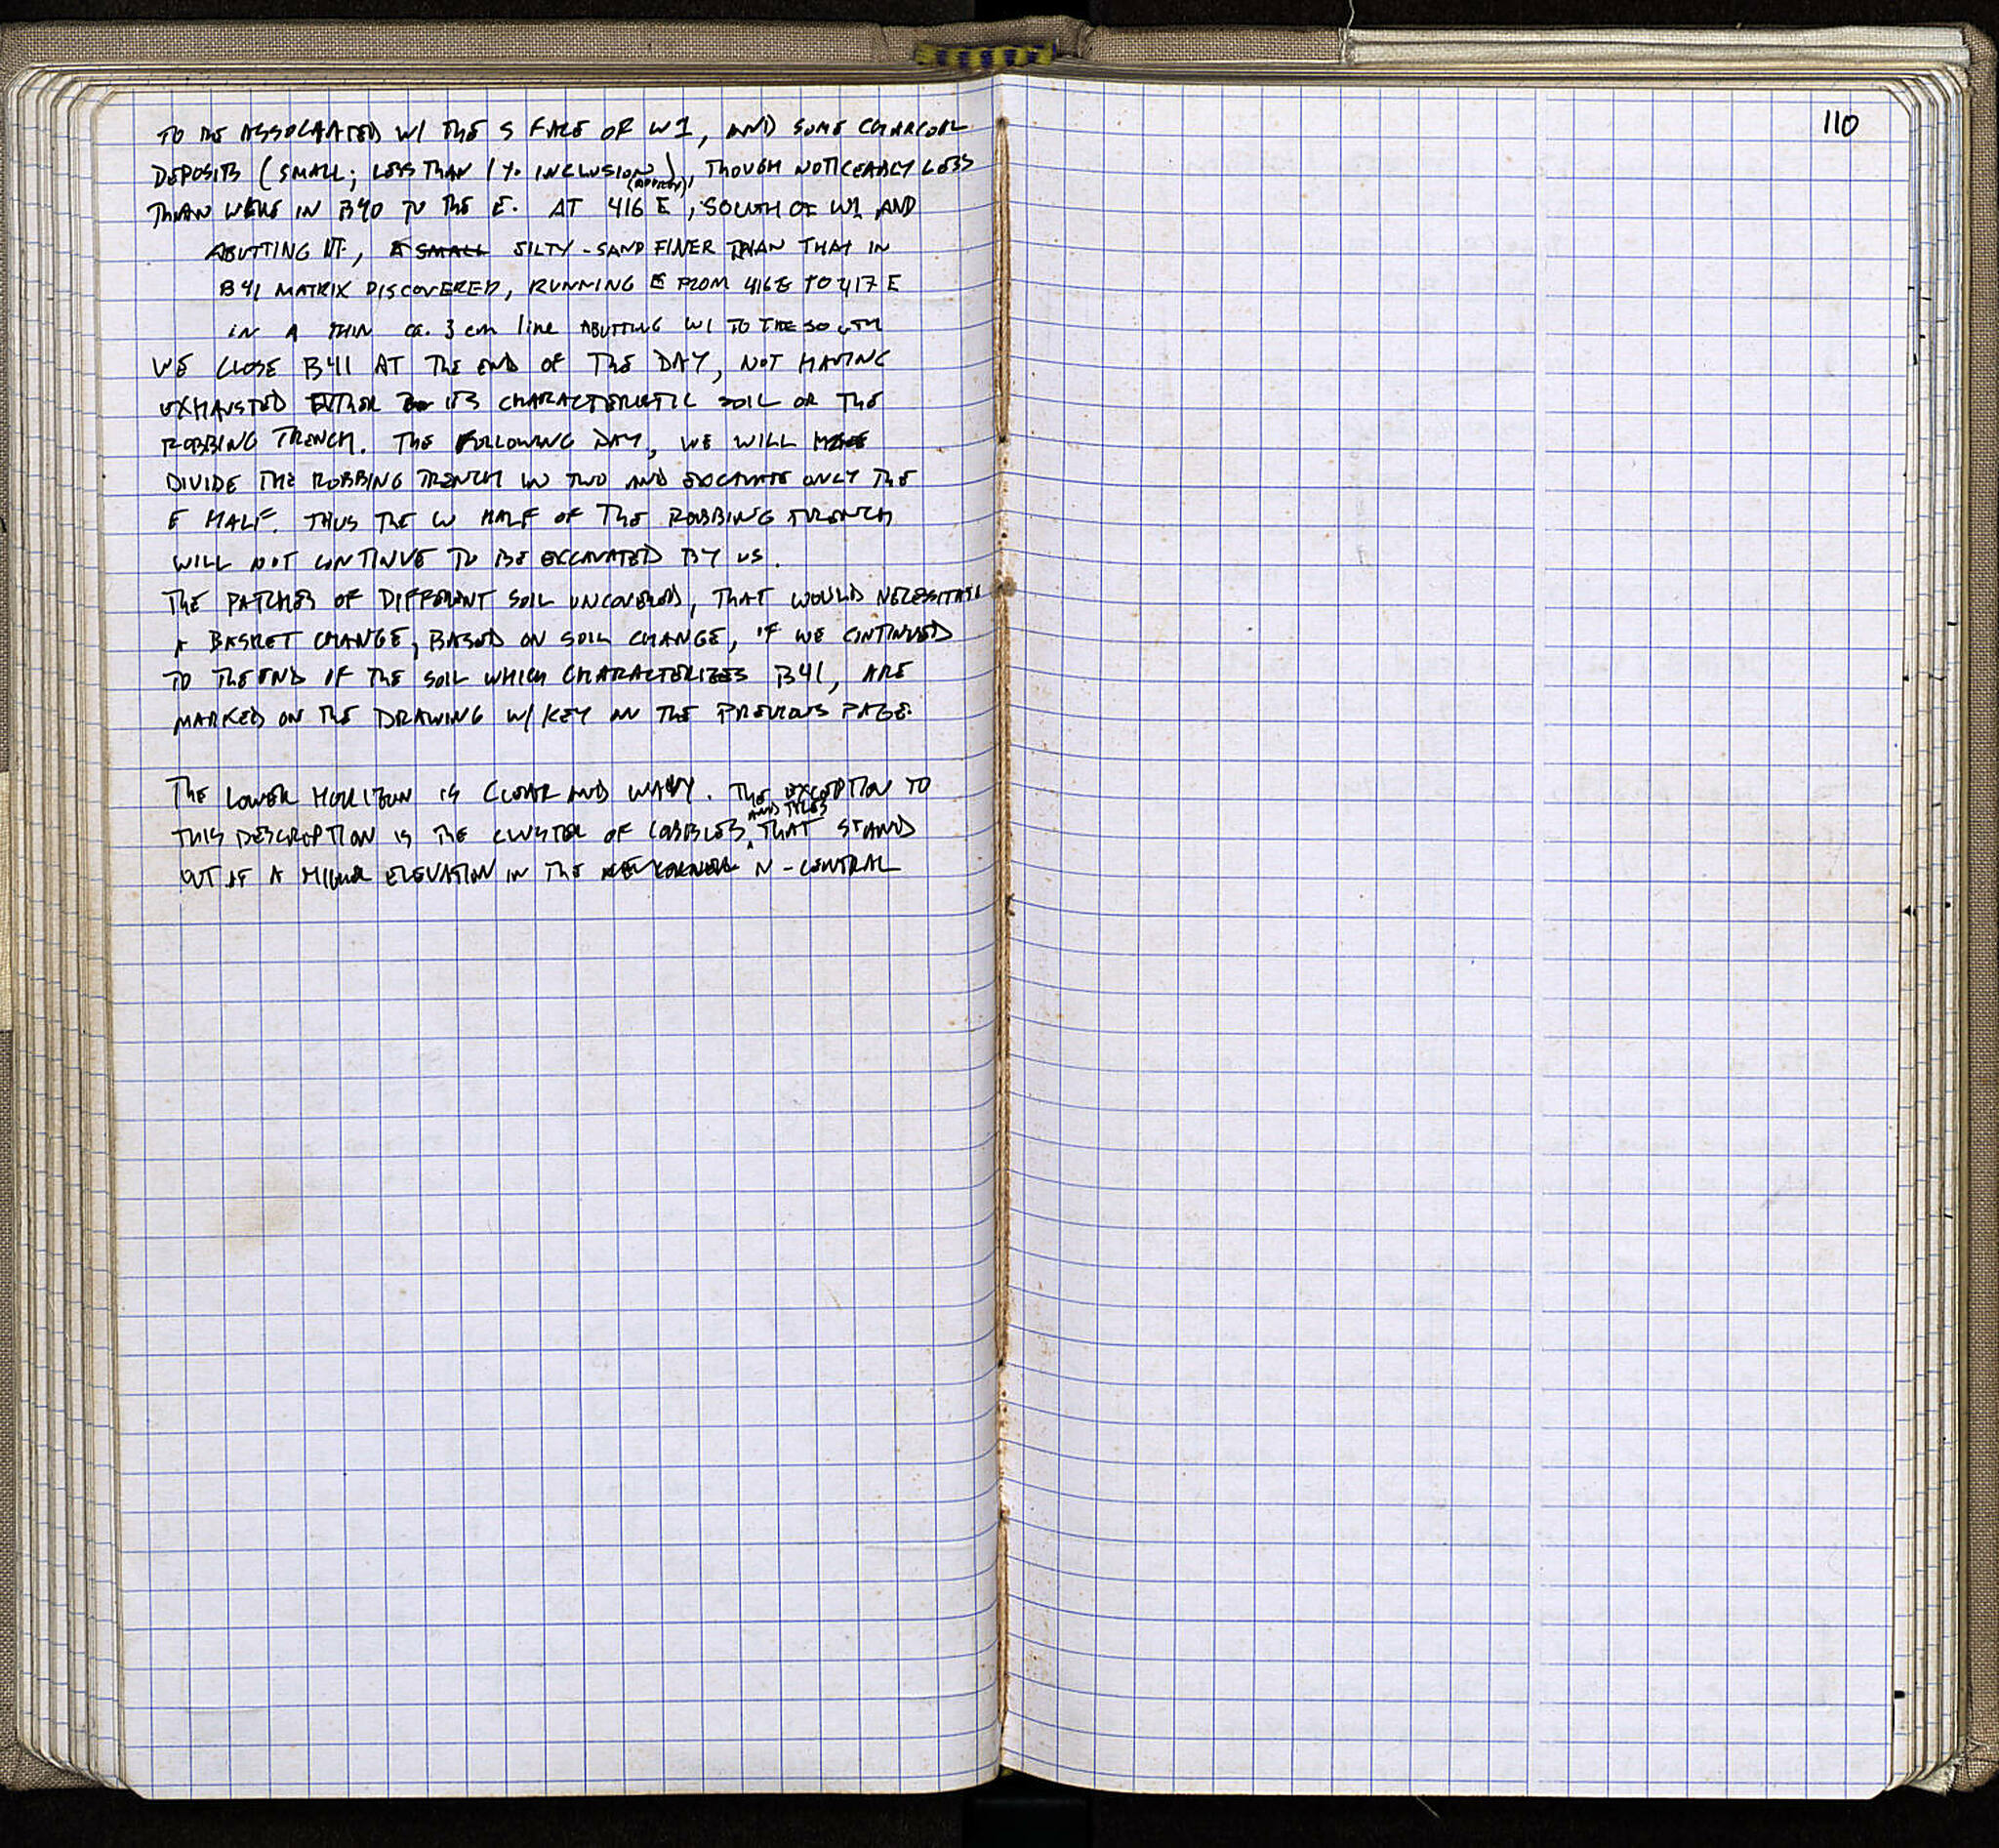 TO BE ASSOCIATED W/ THE S FACE OF W1, AND SOME CHARCOAL
DEPOSITS (SMALL; LESS THAN 1% INCLUSIONS), THOUGH NOTICEABLY LESS
THAN WERE IN B40 TO THE E. AT 416 E, SOUTH OF W1 AND
ABUTTING IT, A SMALL SILTY-SAND FINER THAN THAT IN
B41 MATRIX DISCOVERED, RUNNING E FROM 416E TO 417 E
IN A THIN ca. 3 cm line ABUTTING W1 TO THE SOUTH
WE CLOSE B41 AT THE END OF THE DAY, NOT HAVING
EXHAUSTED EITHER ITS CHARACTERISTIC SOIL OR THE
ROBBING TRENCH. THE FOLLOWING DAY, WE WILL
DIVIDE THE ROBBING TRENCH IN TWO AND EXCAVATE ONLY THE
E HALF. THUS THE W HALF OF THE ROBBING TRENCH
WILL NOT CONTINUE TO BE EXCAVATED BY US.
THE PATCHES OF DIFFERENT SOIL UNCOVERED, THAT WOULD NECESSITATE
A BASKET CHANGE, BASED ON SOIL CHANGE, IF WE CONTINUED
TO THE END OF THE SOIL WHICH CHARACTERIZES B41, ARE
MARKED ON THE DRAWING W/ KEY ON THE PREVIOUS PAGE.
THE LOWER HORIZON IS CLEAR AND WAVY. THE EXCEPTION TO
THIS DESCRIPTION IS THE CLUSTER OF COBBLES AND TILES THAT STAND
OUT AT A HIGHER ELEVATION IN THE N-CENTRAL
110